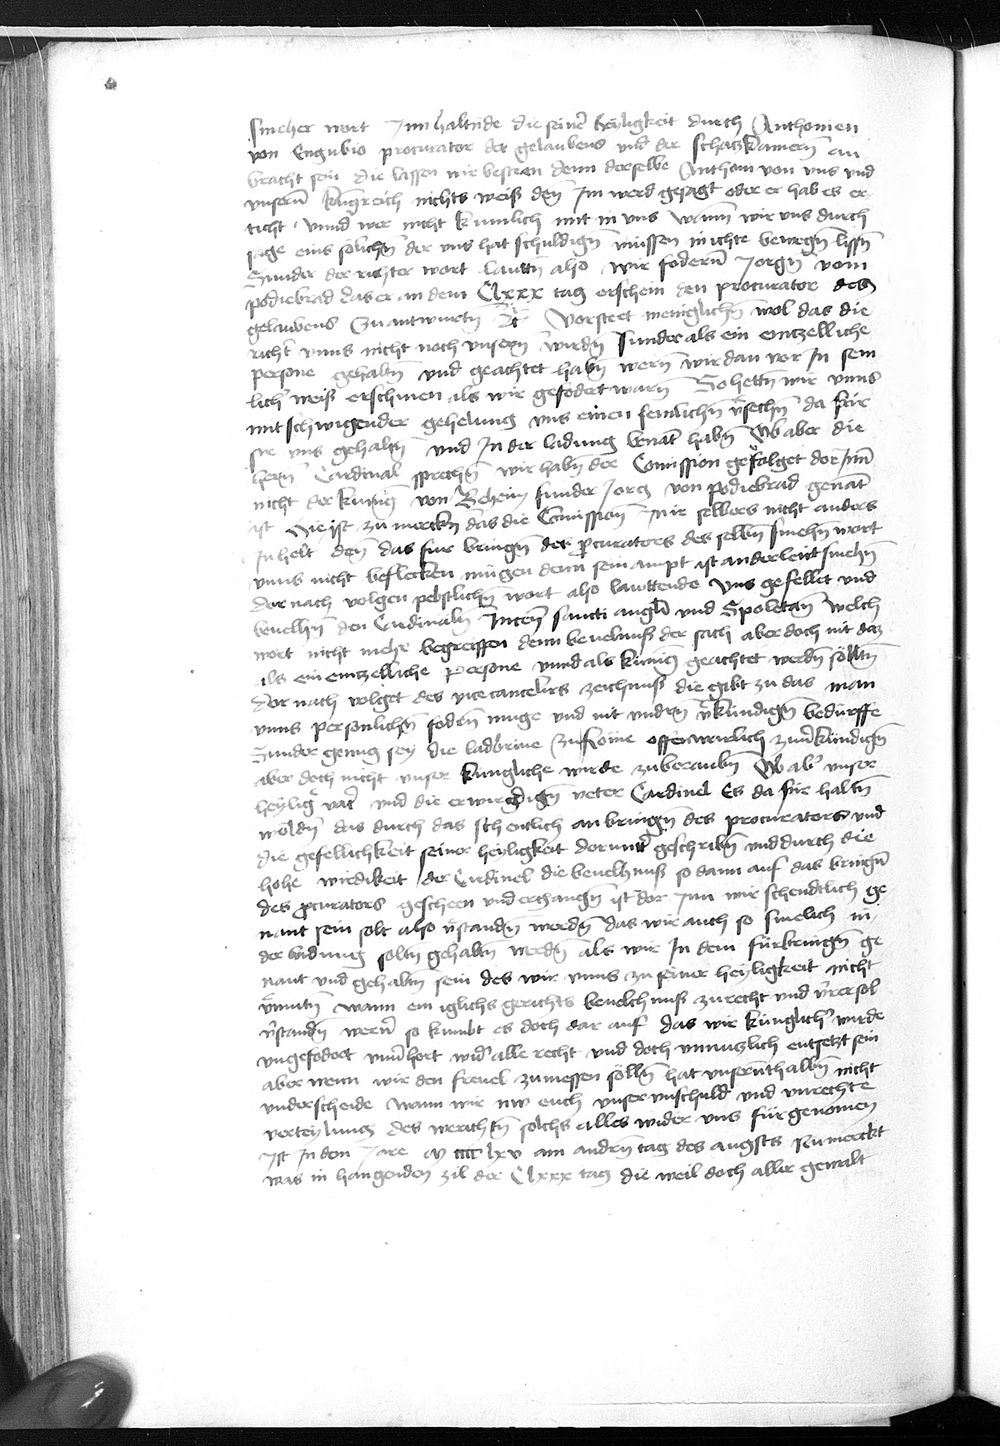 smeher wort Inn haltnde die seiner heyligkeit durch Anthonien
von Engubio procurator des gelaubens und der schatzkamern an
bracht sein die lassen wir besteen denn derselbe Anthoni von uns und
unserm kungreich nichts weiß den Im werd gesagt oder er hab es er
ticht unnd wer nicht kumlich mit in uns wann wir uns durch
sage eins solichen der uns hat schuldigen müssen nichte bewegen lissen
Sunder der richter wort lauttn also wir fodern Jorgen vom
podiebrad das er an dem Clxxx tag erschein den procurator des
gelaubens zu antwurtn etc vorsteet meniglichen wol das die
richter unns nicht noch unsern wirdn sunder als ein eintzelliche
persone gehaltn und geachtet habn wern wir dan vor In sem
lich weiß erschinen als wir gefodert warn So hettn wir unns
mit schwigender gehelung uns einen semlichen da für
sie uns gehaltn und In der ladung benant habn Wo aber die
hern Cardinal sprechn wir habn der Comission gefolget dor Inn
nicht der kunig von Beheim sunder Jorg von podiebrad genant
ist Die ist zu mercken das die Comission In ir selbers nicht anders
Inhelt den das fur bringen des procurators des selbn smehn wort
unns nicht beflecken mügen denn sein ampt ist anderleut smehn
dor nach volgen pebstlichn wort also lauttende Uns gefellet und
bevelhn den Cardinaln Nicen sancti angeli und Spoletan welch
wort nicht mehr begreiffen denn bevelnuß der sach aber doch nit daz
als ein eintzelliche persone unnd als kunig geachtet werdn solltn
Dor nach volget des vicecancelirs zeichnuß die gibt zu das man
unns personlichn fodern muge und nit undrn verkundign bedurffe
Sunder genug sey die ladbrive zu Rome offenwirlich zuverkündign
aber doch nicht unser kungliche wirde zuberaubn Wo aber unser
heylig vater und die erwirdign veter Cardinel Es da für haltn
woldn das durch das schentlich anbringen des procurators und
die gefellichkeit seiner heyligkeit dorunter geschribn und durch die
hohe wirdikeit der Cardinel die bevelhnuß so dann auf das bringen
des procurators gescheen und ergangen ist dor Inn wir schendtlich ge
nant sein solt also verstandn werdn das wir auch so smelich in
der ladung soltn gehaltn werdn als wir In dem fürbringen ge
nant und gehaltn sein des wir unns zu seiner heyligkeit nicht
vermutn wann ein iglichs gerichts bevelchnuß zu recht und
verstandn wern so kumbt es doch dar auf das wir kunglicher wirde
ungefodert unverhort wider alle recht und doch unnutzlich entsetzt sein
aber wenn wir den frevel zumessen sölln hat unsernthalbn nicht
underscheide wann wir nw euch unser unschuld und unrechte
verteylung des solchs alles wider uns fürgenomen
Ist In den Jare M cccc lxv am andrn tag des augsts Nu merckt
was in hangenden zil der Clxxx tag die weil doch aller gewalt